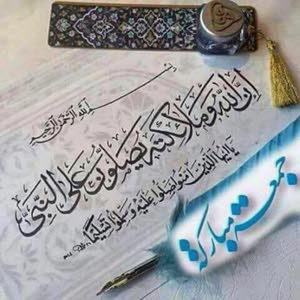 بسم الله الرحمن الرحيم
إن الله وملائكته يصلون على النبي
يا أيها الذين آمنوا صلوا عليه وسلموا تسليما
جمعة مباركة